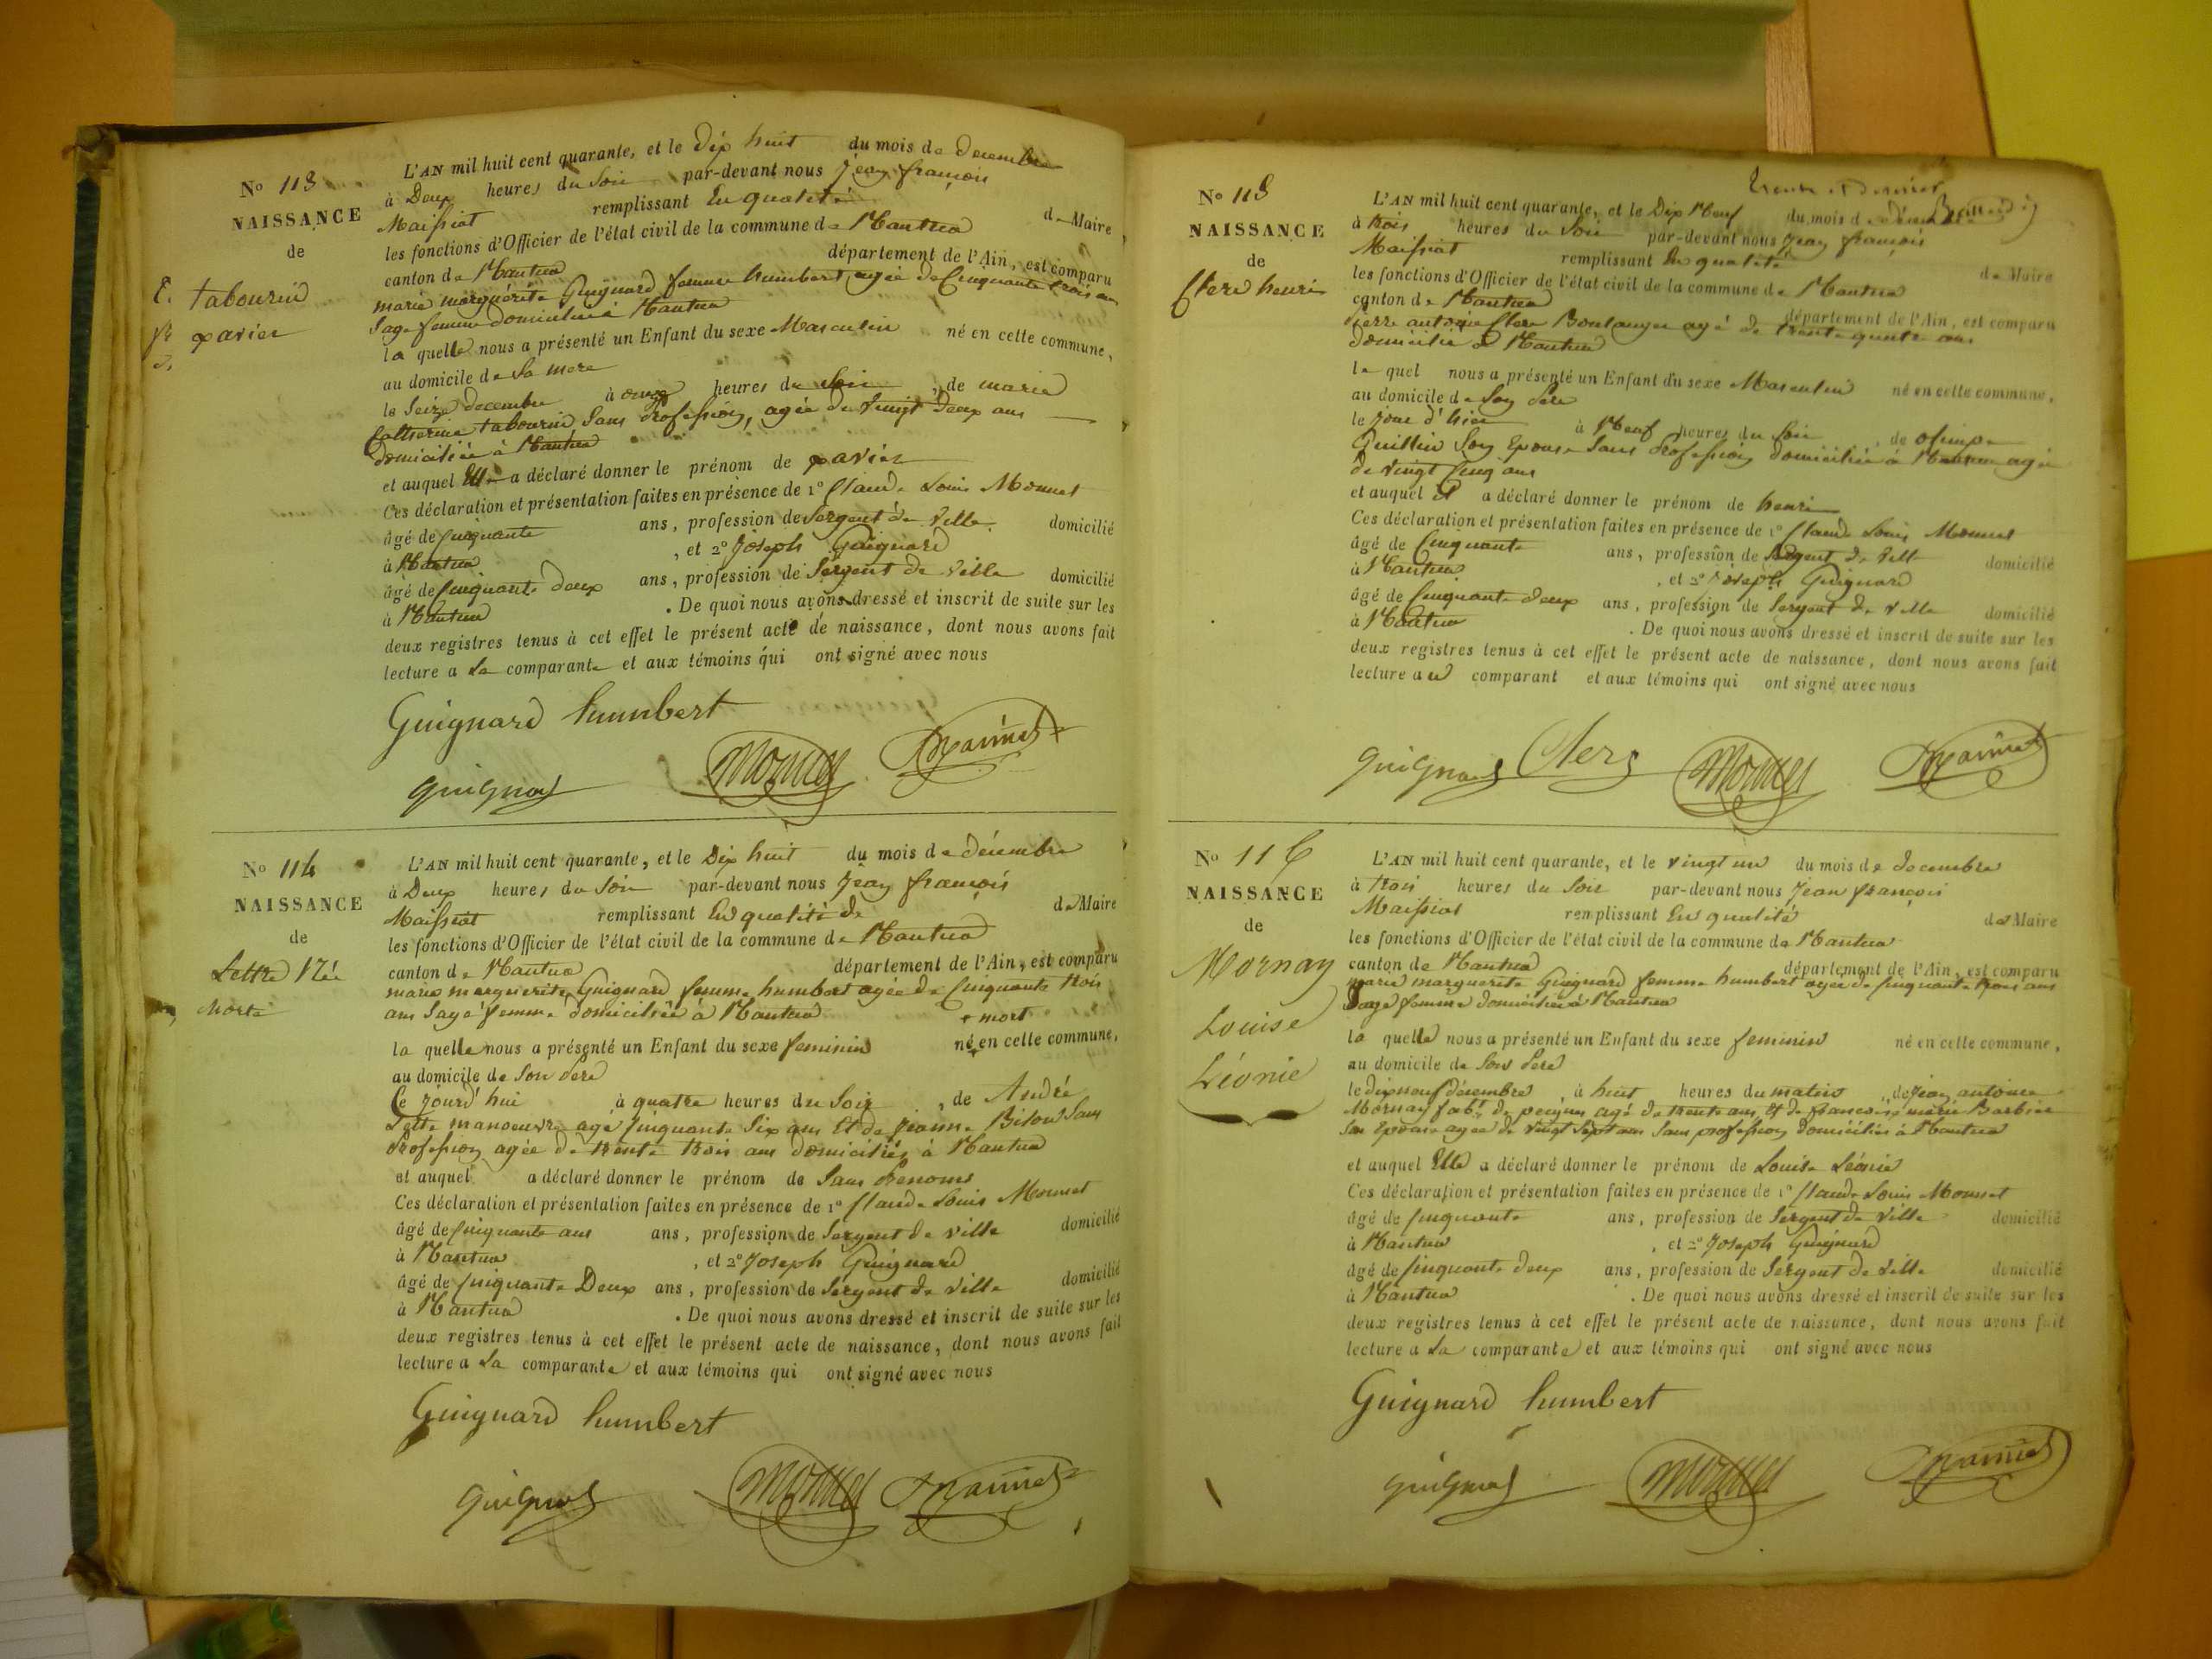 No 113
NAISSANCE
de
tabourin
xavier
L'AN mil huit cent quarante, et le Dix huit du mois de decembre
à Deux heures du Soir par-devant nous Jean françois
Maissiat remplissant En qualité de Maire
les fonctions d'Officier de l'état civil de la commune de Nantua
canton de Nantua département de l'Ain, est comparu
marie marguérite Guignard femme humbert agée de Cinquante trois ans
Sage femme domiciliée à Nantua
la quelle nous a présenté un Enfant du sexe Masculin né en cette commune,
au domicile de Sa mere
le Seize decembre à onze heures du Soir, de marie
Catherine tabourin Sans Profession, agée de vingt Deux ans
domiciliée à Nantua
et auquel Elle a déclaré donner le prénom de xavier
Ces déclaration et présentation faites en présence de 1º Claude Louis Monnet
âgé de Cinquante ans, profession de Sergent de Ville domicilié
à Nantua, et 2º Joseph Guignard
âgé de Cinquante deux ans, profession de Sergent de Ville domicilié
à Nantua. De quoi nous avons dressé et inscrit de suite sur les
deux registres tenus à cet effet le présent acte de naissance, dont nous avons fait
lecture a La comparante et aux témoins qui ont signé avec nous
Guignard humbert
guignard Monnet
No 114
NAISSANCE
de
Lette Née
Morte
L'AN mil huit cent quarante, et le Dix huit du mois de décembre
à Deux heures du Soir par-devant nous Jean françois
Maissiat remplissant En qualité de de Maire
les fonctions d'Officier de l'état civil de la commune de Nantua
canton de Nantua département de l'Ain, est comparu
marie marguerite Guignard femme humbert agée de Cinquante trois
ans Sage femme domiciliée à Nantua + mort
la quelle nous a présenté un Enfant du sexe feminin né + en cette commune,
au domicile de Son Pere
Ce jourd'hui à quatre heures du Soir, de André
Lette manoeuvre agé Cinquante Six ans Et de Jeanne Bilon Sans
Profession agée de trente trois ans domiciliés à Nantua
et auquel a déclaré donner le prénom de Sans Prenoms
Ces déclaration et présentation faites en présence de 1º Claude Louis Monnet
âgé de Cinquante ans ans, profession de Sergent de Ville domicilié
à Nantua, et 2º Joseph Guignard
âgé de Cinquante Deux ans, profession de Sergent de Ville domicilié
à Nantua. De quoi nous avons dressé et inscrit de suite sur les
deux registres tenus à cet effet le présent acte de naissance, dont nous avons fait
lecture a La comparante et aux témoins qui ont signé avec nous
Guignard humbert
guignard Monnet
No 115
NAISSANCE
de
Clere henri
L'AN mil huit cent quarante, et le Dix Neuf du mois de decembre
à trois heures du Soir par-devant nous Jean françois
Maissiat remplissant En qualité de Maire
les fonctions d'Officier de l'état civil de la commune de Nantua
canton de Nantua département de l'Ain, est comparu
Pierre antoine Clere Boulanger agé de trente quatre ans
domicilié à Nantua
le quel nous a présenté un Enfant du sexe Masculin né en cette commune,
au domicile de Son Pére
le jour d'hier à Neuf heures du Soir, de olimpe
Guillin Son Epouse Sans Profession domiciliée à Nantua agée
de vingt Cinq ans
et auquel il a déclaré donner le prénom de henri
Ces déclaration et présentation faites en présence de 1º Claude Louis Monnet
âgé de Cinquante ans, profession de Sergent de Ville domicilié
à Nantua, et 2º Joseph Guignard
âgé de Cinquante deux ans, profession de Sergent de Ville domicilié
à Nantua. De quoi nous avons dressé et inscrit de suite sur les
deux registres tenus à cet effet le présent acte de naissance, dont nous avons fait
lecture au comparant et aux témoins qui ont signé avec nous
guignard Clerg Monnet
No 116
NAISSANCE
de
Mornay
Louise
Léonie
L'AN mil huit cent quarante, et le vingt un du mois de decembre
à trois heures du Soir par-devant nous Jean françois
Maissiat remplissant En qualité de Maire
les fonctions d'Officier de l'état civil de la commune de Nantua
canton de Nantua département de l'Ain, est comparu
marie marguerite Guignard femme humbert agée de Cinquante trois ans
Sage femme domiciliée à Nantua
la quelle nous a présenté un Enfant du sexe feminin né en cette commune,
au domicile de Son Pere
le dix neuf décembre, à huit heures du matin, de Jean antoine
Mornay fabt de peignes agé de trente ans Et de francoise marie Barbier
Son Epouse agée de vingt Sept ans Sans profession domiciliés à Nantua
et auquel Elle a déclaré donner le prénom de Louise Léonie
Ces déclaration et présentation faites en présence de 1º Claude Louis Monnet
âgé de Cinquante ans, profession de Sergent de Ville domicilié
à Nantua, et 2º Joseph Guignard
âgé de Cinquante deux ans, profession de Sergent de Ville domicilié
à Nantua. De quoi nous avons dressé et inscrit de suite sur les
deux registres tenus à cet effet le présent acte de naissance, dont nous avons fait
lecture a La comparante et aux témoins qui ont signé avec nous
Guignard humbert
guignard Monnet